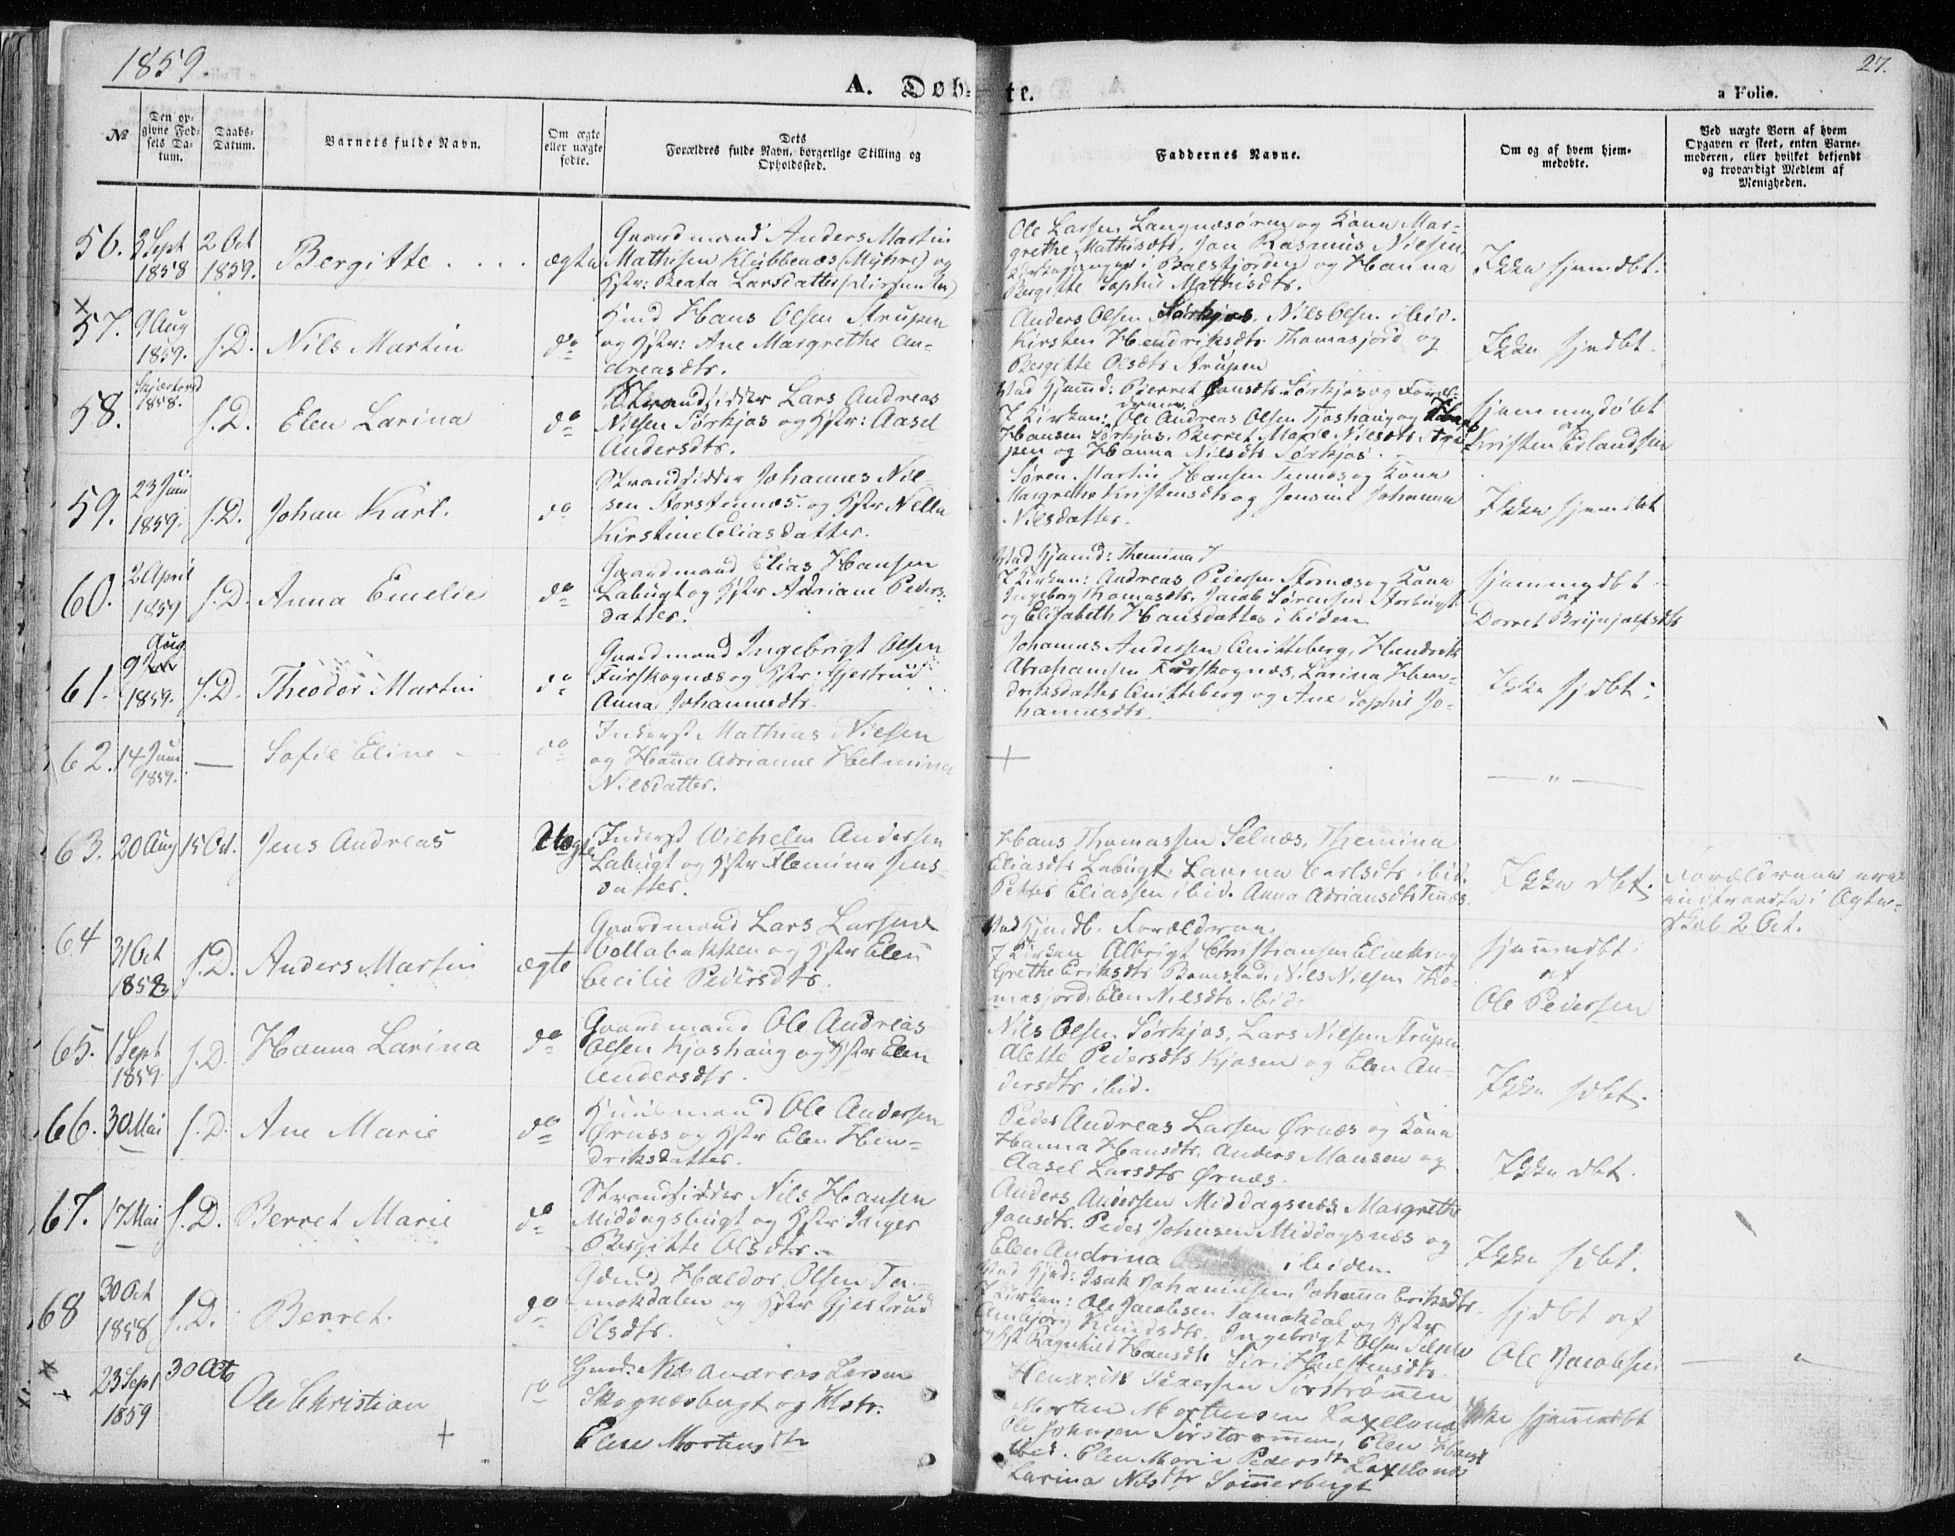 1859
27.
A. Døbte.
a Folio.
No
Den opgivne Fødsels Datum.
Daabs-Datum.
Barnets fulde Navn.
Om ægte eller uægte fødte.
Dets Forældres fulde Navn, borgerlige Stilling og Opholdssted.
Faddernes Navne.
Om og af hvem hjemmedøbte.
Ved uægte Børn af hvem Opgaven er skeet, enten Barnemoderen, eller hvilket bekjendt og troværdigt Medlem af Menigheden.
56.
Sept 1858
2 Oct 1859.
Bergitte
ægte
Gaardmand Anders Martin
Mathisen Klubbenæs (Myhre) og
Hstr: Beata Larsdatter
Ole Larsen Langnæsøren og Kone Mar-
grethe Mathisdtr, Jan Rasmus Nielsen
i Balsfjorden og Hanna
Bergitte Sophie Mathisdtr.
Ikke hjemdbt.
57.
9 Aug 1859.
s.D.
Nils Martin
do
Hans Olsen Strupen
og Hstr: Ane Margrethe An-
dreasdtr.
Anders Olsen Sørkjos. Nils Olsen ibid.
Kirsten Hendriksdtr Thomasjord og
Bergitte Olsdtr Strupen
Ikke hjdbt.
58.
1858.
s.D.
Elen Larina
do
Strandsidder Lars Andreas
Nielsen Sørkjos og Hstr: Aasel
Andersdtr.
Ved Hjemd: Pierret Hansdtr. Sørkjos og Foræl-
drene.
I Kirken: Ole Andreas Olsen Kjoshaug og
Hansen Sørkjos. Berret Marie Nilsdtr Stru
pen og Hanna Nilsdtr Sørkjos.
hjemmedøbt
af
Kristen Erlandsen
59.
23 Juni 1859.
s.D.
Johan Karl.
do
Strandsidder Johannes Nil-
sen Storstennæs. og Hstr Nella
Kirstine Eliasdatter.
Søren Martin Hansen Tennæs og Kone
Margrethe Kristensdtr og Jensine Johanna
Nilsdatter.
Ikke hjemdbt
60.
2 April 1859
s.D.
Anna Emelie
do
Gaardmand Elias Hansen
Labugt og Hstr Adriane Peders-
datter.
Ved Hjemd: Themina
I Kirken: Andreas Pedersen Stornæs og Kone
Ingeborg Thomasdtr. Jacob Sørensen Storbugt
og Elisabeth Hansdatter ibidem
hjemmedbt
af
Dorret Brynjulfsdtr
61.
9 Aug 1859.
s.D.
Theodor Martin
do
Gaardmand Ingebrigt Olsen
Furskognæs og Hstr: Gjertrud
Anna Johannesdtr.
Johannes Andersen Anikkeberg, Hendrik
Abrahamsen Furskognæs, Larina Hen-
driksdatter Anikkeberg og Ane Sophie Jo-
hannesdtr.
Ikke hjdbt.
62.
14 Juni 1859.
—
Sofie Eline
do
Inderst Mathias Nielsen
og Hanna Adrianne Helmina
Nilsdatter.
+
— " —
63.
20 Aug
15 Oct.
Jens Andreas
Uægte
Inderst Wilhelm Andersen
Labugt og Hstr Flemina Jens-
datter.
Hans Thomassen Selnæs, Themina
Eliasdtr Labugt. Lavina Carlsdtr ibid.
Petter Eliassen ibid. Anna Adriansdtr Tennæs.
Ikke dbt.
Forældrene ere
indtraadte i Ægte-
skab 2 Oct.
64
31 Oct 1858
s.D.
Anders Martin
ægte
Gaardmand Lars Larsen
Collabakken og Hstr Elen
Cecilie Pedersdtr.
Ved Hjemdb. Forældrene.
I Kirken Albrigt Christiansen og
Grethe Eriksdtr Bomstad. Nils Nilsen Tho-
masjord. Elen Nilsdtr. ibid.
hjemmedbt.
af
Ole Pedersen
65.
1 Sept 1859
s.D.
Hanna Larina
do
Gaardmand Ole Andreas
Olsen Kjoshaug og Hstr Elen
Andersdtr.
Nils Olsen Sørkjos, Lars Nilsen Strupen
Alette Pedersdtr Kjosen og Elen An-
dersdtr ibid.
Ikke hdbt.
66.
30 Mai
s.D.
Ane Marie
do
Huusmand Ole Andersen
Ørnæs og Hstr Elen Hen-
driksdatter.
Peder Andreas Larsen Ørnæs og Kone
Hanna Hansdtr. Anders Monsen og
Aasel Larsdtr Ørnæs.
Ikke dbt.
67.
17 Mai
s.D.
Berret Marie
do
Strandsidder Nils Hansen
Middagsbugt og Hstr Inger
Bergitte Olsdtr.
Anders Andersen Middagsnæs Margrethe
Jonsdtr. Peder Johnsen Middagsnæs og
Elen Andrina ibidem.
Ikke hdbt.
68
30 Oct 1858
s.D.
Berret.
do
Gdmd. Haldor Olsen Ta-
mokdalen og Hstr Gjertrud
Olsdtr.
Ved Hjmd: Isak Johannesen, Johanna Eriksdtr
I Kirken: Ole Jacobsen Tamokdal og Hstr
Anbjørg Knudsdtr. Ingebrigt Olsen
og Hst Ragnhild Hansdtr Siri Halstensdtr
hjdbt af
Ole Jacobsen
— "
23 Sept 1859
30 Oct
Ole Christian
+
do
Gmd: Nils Andreas Larsen
Skognæsbugt og Hstr.
Elen Mortensdtr
Hendrik Pedersen Sørstrømmen
Morten Mortensen Laxelvnæs
Ole Johnsen Sørstrømmen, Elen Hansd
ibid. Elen Maria Pedersdtr Laxelvnæs
Larina Nilsdtr Sommerbugt
Ikke hjemmedbt